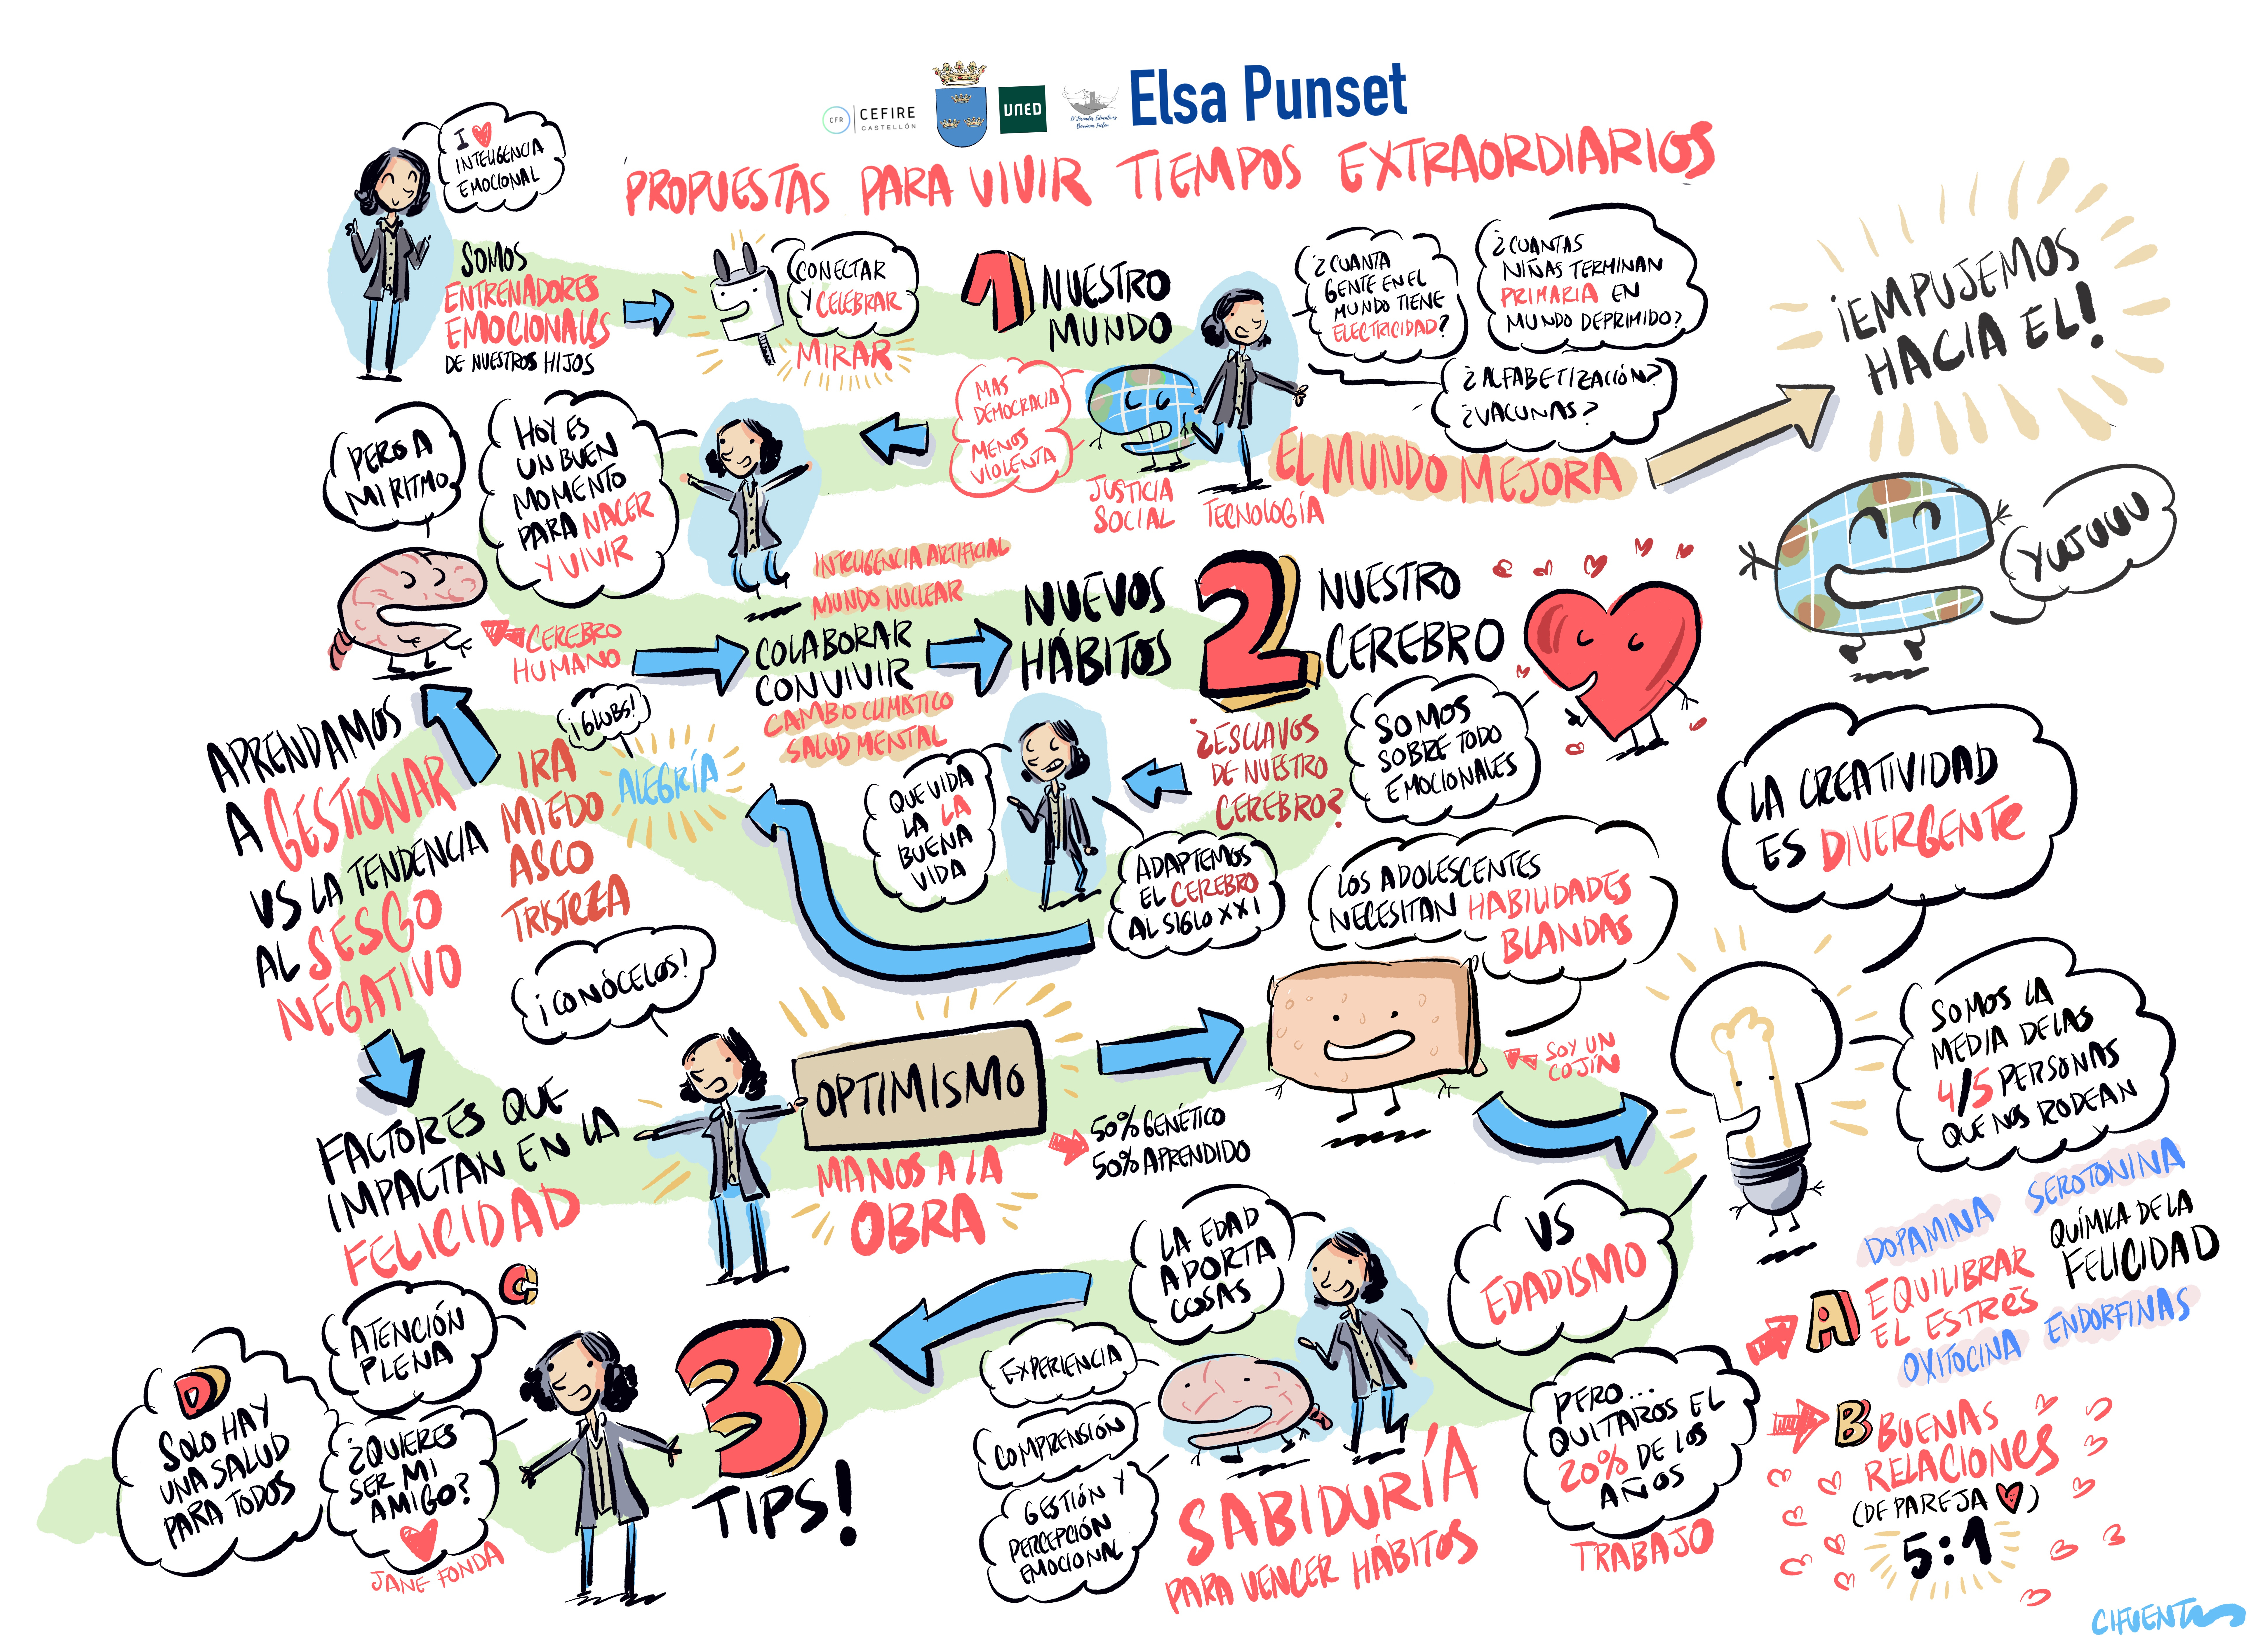 CFR
CEFIRE
CASTELLÓN
UNED
Elsa Punset
PROPUESTAS PARA VIVIR TIEMPOS EXTRAORDIARIOS
I ❤
INTELIGENCIA
EMOCIONAL
SOMOS
ENTRENADORES
EMOCIONALES
DE NUESTROS HIJOS
CONECTAR
Y CELEBRAR
MIRAR
1 NUESTRO
MUNDO
¿CUANTA
GENTE EN EL
MUNDO TIENE
ELECTRICIDAD?
¿CUANTAS
NIÑAS TERMINAN
PRIMARIA EN
MUNDO DEPRIMIDO?
¿ALFABETIZACIÓN?
¿VACUNAS?
¡EMPUJEMOS
HACIA EL!
EL MUNDO MEJORA
MAS
DEMOCRACIA
MENOS
VIOLENTA
JUSTICIA
SOCIAL
TECNOLOGÍA
YUJUUU
HOY ES
UN BUEN
MOMENTO
PARA NACER
Y VIVIR
PERO A
MI RITMO
CEREBRO
HUMANO
INTELIGENCIA ARTIFICIAL
MUNDO NUCLEAR
COLABORAR
CONVIVIR
CAMBIO CLIMÁTICO
SALUD MENTAL
NUEVOS
HÁBITOS
2 NUESTRO
CEREBRO
SOMOS
SOBRE TODO
EMOCIONALES
¿ESCLAVOS
DE NUESTRO
CEREBRO?
QUE VIDA
LA LA
BUENA
VIDA
ADAPTEMOS
EL CEREBRO
AL SIGLO XXI
¡GLUBS!
ALEGRÍA
IRA
MIEDO
ASCO
TRISTEZA
APRENDAMOS
A GESTIONAR
VS LA TENDENCIA
AL SESGO
NEGATIVO
¡CONÓCELOS!
FACTORES QUE
IMPACTAN EN LA
FELICIDAD
OPTIMISMO
MANOS A LA
OBRA
50% GENÉTICO
50% APRENDIDO
LOS ADOLESCENTES
NECESITAN HABILIDADES
BLANDAS
SOY UN
COJÍN
LA CREATIVIDAD
ES DIVERGENTE
SOMOS LA
MEDIA DE LAS
4/5 PERSONAS
QUE NOS RODEAN
VS
EDADISMO
LA EDAD
APORTA
COSAS
PERO...
QUITAROS EL
20% DE LOS
AÑOS
TRABAJO
EXPERIENCIA
COMPRENSIÓN
GESTIÓN Y
PERCEPCIÓN
EMOCIONAL
SABIDURÍA
PARA VENCER HÁBITOS
3
TIPS!
DOPAMINA
SEROTONINA
QUÍMICA DE LA
FELICIDAD
A EQUILIBRAR
EL ESTRÉS
OXITOCINA
ENDORFINAS
B BUENAS
RELACIONES
(DE PAREJA ❤)
5:1
C
ATENCIÓN
PLENA
¿QUIERES
SER MI
AMIGO?
JANE FONDA
D
SOLO HAY
UNA SALUD
PARA TODOS
CIFUENTES